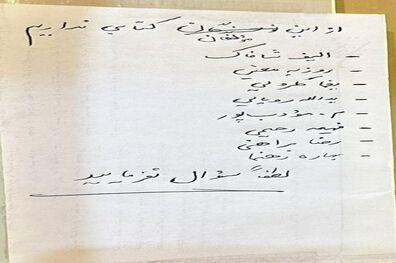 از این مؤلفان کتابی نداریم
- الیف شافاک
- روزبه معین
- یغما گلرویی
- یدالله رویایی
- م. مؤدب‌پور
- فهیمه رحیمی
- رضا براهنی
- ساره رهنما
لطفاً سؤال نفرمایید